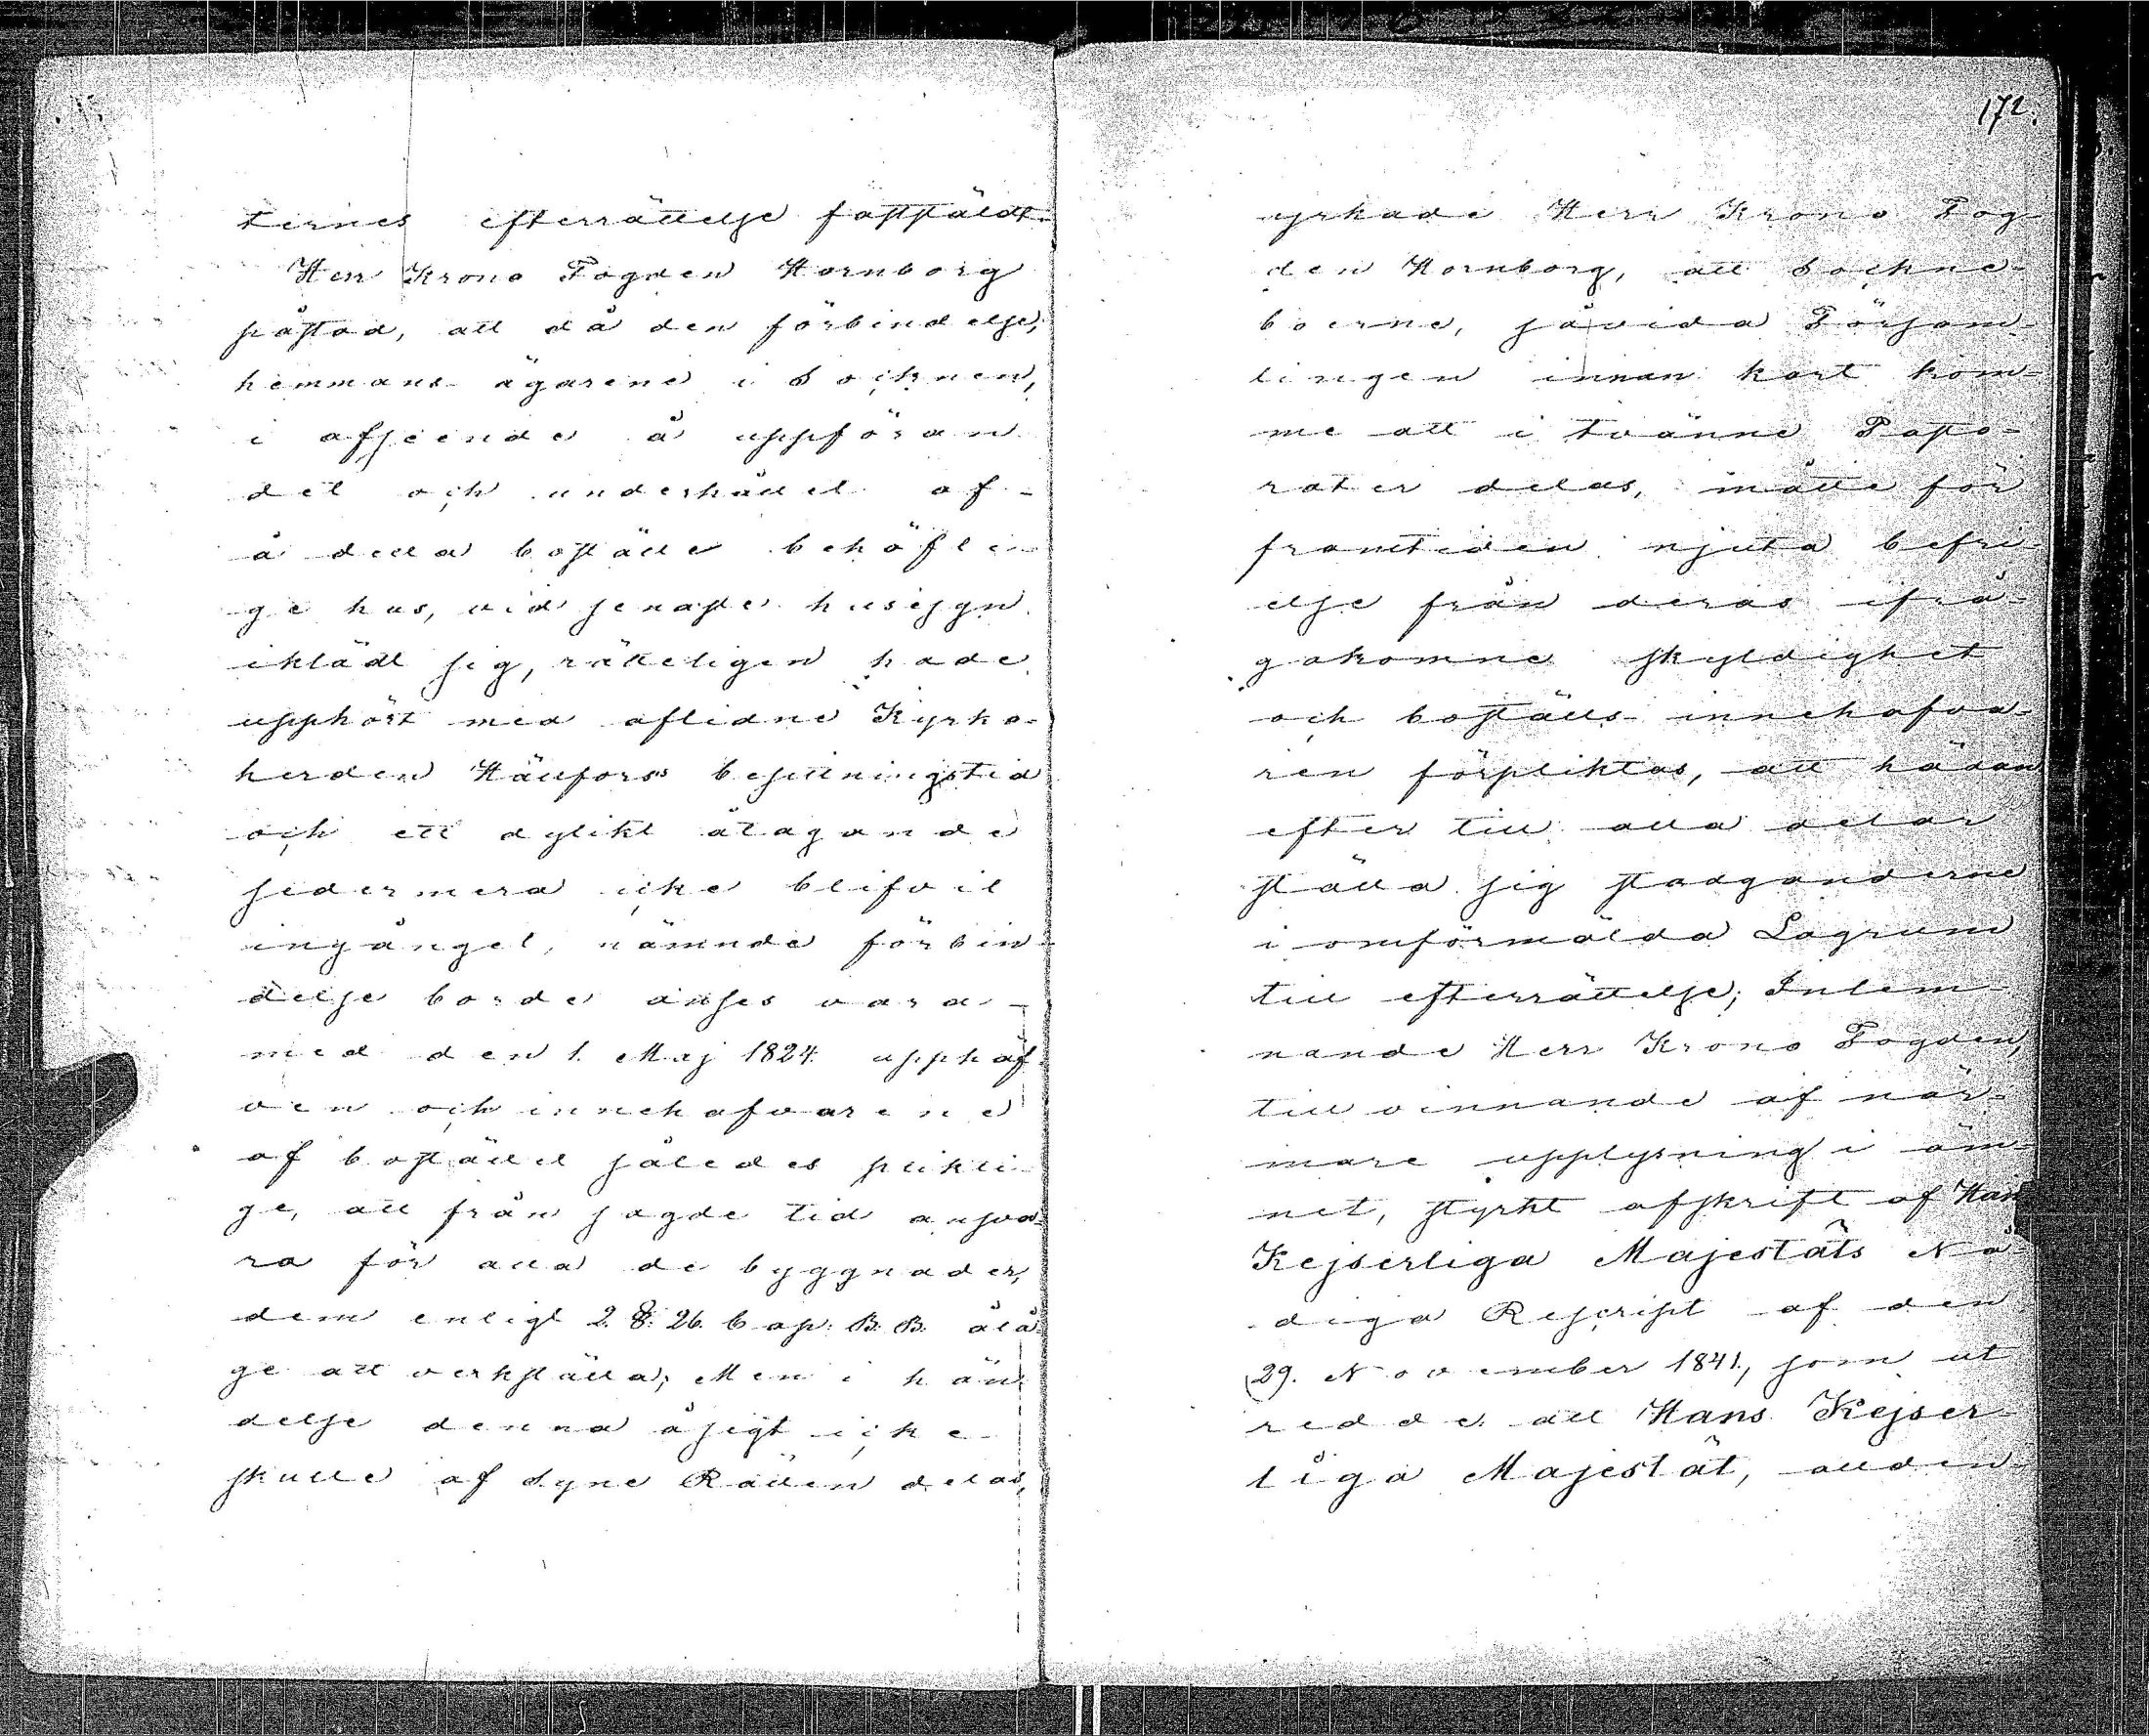 ternes efterrättelse fastställdt.
Herr Krono Fogden Hornborg
påstod, att då den förbindelse,
hemmans ägarene i Socknen,
i afseende å uppföran
det och underhållet af
å detta boställe behöfli
ge hus, vid senaste husesyn
iklädt sig, rätteligen hade
upphört med aflidne Kyrko-
herden Hällfors's besittningstid
och ett dylikt åtagande
sedermera icke blifvit
ingånget, nämnde förbin-
delse borde anses vara
med den 1. Maj 1824. upphäf-
ven och innehafvarene
af bostället således plikti
ge, att från sagde tid ansva-
ra för alla de byggnader,
dem enligt 2. §. 26. Cap. B. B. ålå-
ge att verkställa; Men i hän
delse denna åsigt icke
skulle af Syne Rätten delas,
172.
yrkade Herr Krono Fog-
den Hornborg, att Sockne-
boerne, såvida Försam-
lingen innan kort kom-
me att i tvänne Pasto-
rater delas, måtte för
framtiden njuta befri-
else från deras ifrå-
gakomne skyldighet
och boställs innehafva-
ren förpliktas, att hädan
efter till alla delar
ställa sig stadganderne
i omförmälda Lagrum
till efterrättelse; Inlem-
nande Herr Krono Fogden,
till vinnande af när-
mare upplysning i äm-
net, styrkt afskrift af Hans
Kejserliga Majestäts Nå-
diga Rescript af den
29. November 1841, som ut
redde att Hans Kejser-
liga Majestät, allden-